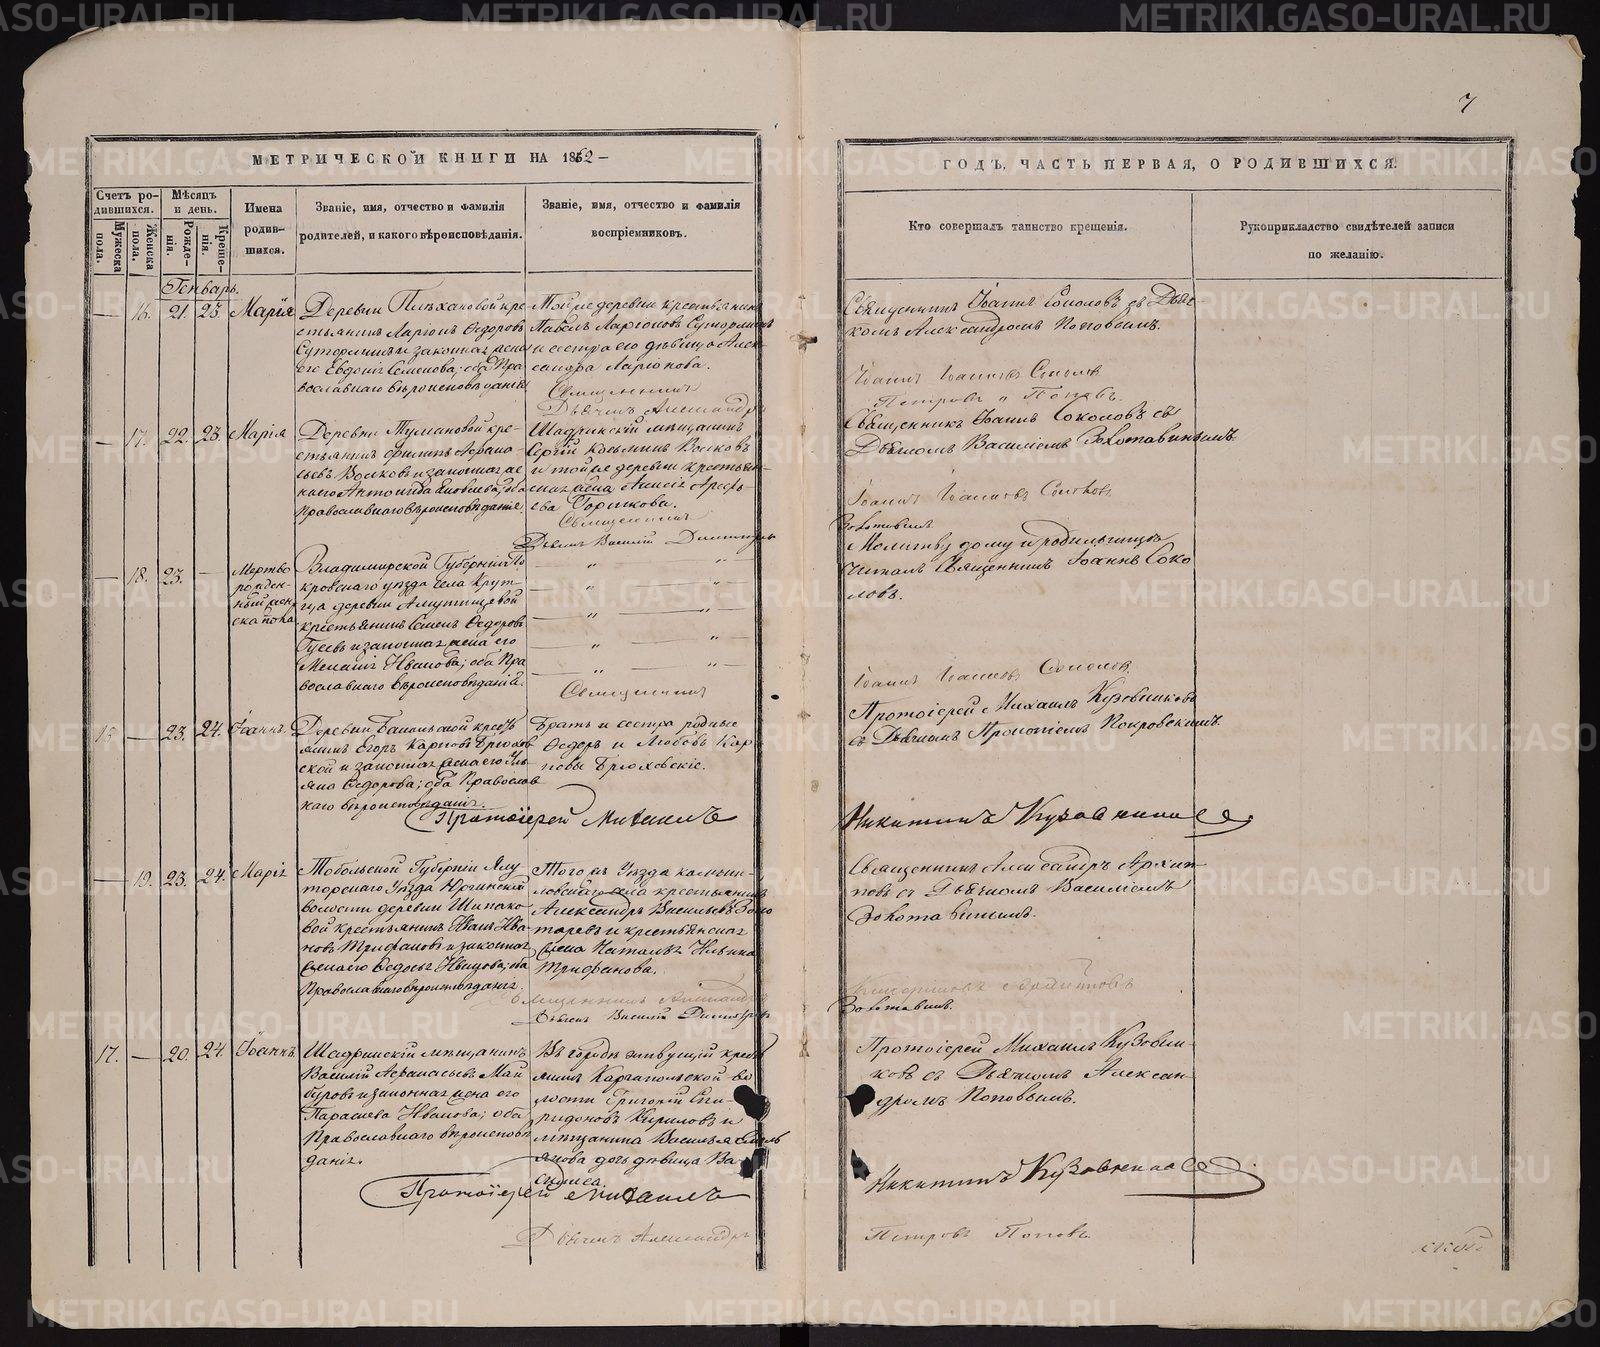 7
МЕТРИЧЕСКОЙ КНИГИ НА 1862
ГОДЪ, ЧАСТЬ ПЕРВАЯ, О РОДИВШИХСЯ.
Счетъ ро-
дившихся.
Мужеска
пола.
Женска
пола.
Мѣсяцъ
и день.
Рожде-
нія.
Креще-
нія.
Имена
родив-
шихся.
Званіе, имя, отчество и фамилія
родителей, и какого вѣроисповѣданія.
Званіе, имя, отчество и фамилія
воспріемниковъ.
Кто совершалъ таинство крещенія.
Рукоприкладство свидѣтелей записи
по желанію.
Генварь.
— 16. 21. 23. Марія
Деревни Плѣхановой кре-
стьянинъ Ларіонъ Ѳедоровъ
Суторминъ и законная жена
его Евдокія Семенова; оба Пра
вославнаго вѣроисповѣданія
Той же деревни крестьянинъ
Павелъ Ларіоновъ Суторминъ
и сестра его дѣвица Алек-
сандра Ларіонова.
Священникъ
Дьячекъ Александръ
Священникъ Іоаннъ Соколовъ съ Дьяч
комъ Александромъ Поповымъ.
Іоаннъ Іоанновъ Соколовъ
Петровъ Поповъ.
— 17. 22. 23. Марія
Деревни Тумановой кре-
стьянинъ Филипъ Аѳана-
сьевъ Волковъ и законная же
на его Антонида Яковлева; оба
Православнаго вѣроисповѣданія.
Шадринскій мѣщанинъ
Сергій Козьминъ Волковъ
и той же деревни крестьян-
ская жена Анисія Арефь-
ева Горшкова.
Священникъ
Дьячекъ Василій Димитріевъ
Священникъ Іоаннъ Соколовъ съ
Дьячкомъ Василіемъ Золотавинымъ
Іоаннъ Іоанновъ Соколовъ
Золотавинъ.
— 18. 23. —
Мертво
рожден-
ный жен
ска пола
Владимирской Губерніи По
кровскаго уѣзда села Крут-
ца деревни Амутищевой
крестьянинъ Семенъ Ѳедоровъ
Гусевъ и законная жена его
Меланія Иванова; оба Пра
вославнаго вѣроисповѣданія.
Священникъ
Молитву дому и родильницѣ
читалъ Священникъ Іоаннъ Соко
ловъ.
Іоаннъ Іоанновъ Соколовъ
15 — 23. 24. Іоаннъ.
ской и законная жена его Уль
яна Ѳедорова; оба Православ
наго вѣроисповѣданія.
Братъ и сестра родные
Ѳедоръ и Любовь Кар
повы Брюховскіе.
Протоіерей Михаилъ
Протоіерей Михаилъ Кузовниковъ
съ Дьячкомъ Прокопіемъ Покровскимъ
Никитинъ Кузовниковъ
— 19. 23. 24. Марія
Тобольской Губерніи Ялу
торскаго Уѣзда Юргинской
волости деревни Шипако
вой крестьянинъ Иванъ Ива
новъ Трифановъ и законная
жена его Ѳедосья Иванова; оба
Православнаго вѣроисповѣданія.
Александръ Васильевъ Золо
таревъ и крестьянская
жена Наталья Ильина
Трифанова.
Священникъ Александръ
Дьячекъ Василій Димитріевъ
Священникъ Александръ Архип
повъ съ Дьячкомъ Василіемъ
Золотавинымъ.
Золотавинъ.
17. — 20. 24. Іоаннъ.
Шадринскій мѣщанинъ
Василій Аѳанасьевъ Май
буровъ и законная жена его
Парасева Иванова; оба
Православнаго вѣроисповѣ
данія.
Въ городѣ живущій кресть
янинъ Каргапольской во
лости Григорій Спи-
ридоновъ Кириловъ и
мѣщанина Василья Емель
янова дочь дѣвица Ва-
силиса
Протоіерей Михаилъ
Дьячекъ Александръ
Протоіерей Михаилъ Кузовни-
ковъ съ Дьячкомъ Алексан-
дромъ Поповымъ.
Никитинъ Кузовниковъ
Петровъ Поповъ.
METRIKI.GASO-URAL.RU